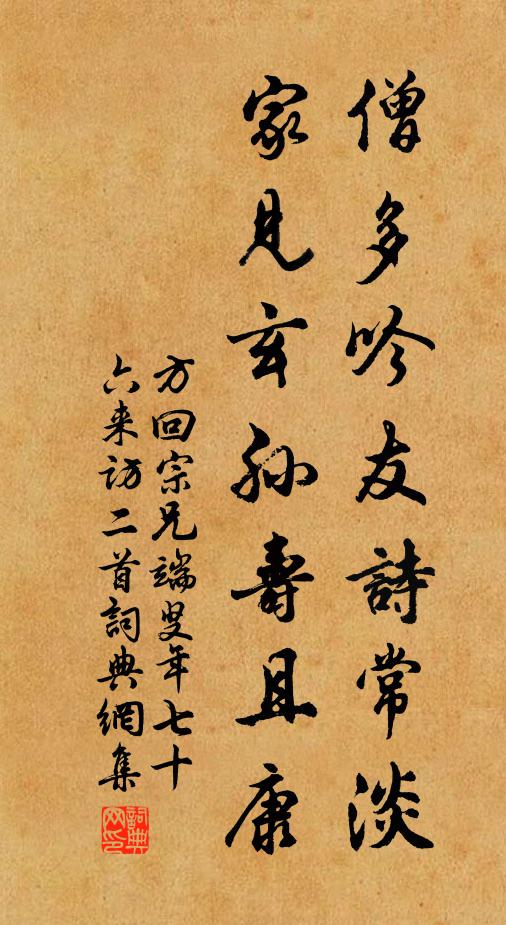 僧多吟友詩常淡
家見玄孫壽且康
方回宗兄端叟年七十
六来訪二首詞典網集
詞典网印